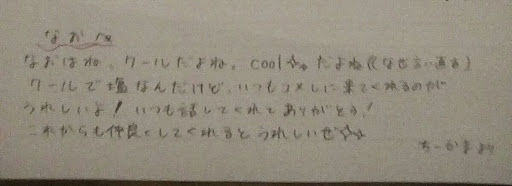 なおへ
なおはね、クールだよね。cool☆。だよね((なぜ言い直る)
クールで塩なんだけど、いつもコメしに来てくれるのが
うれしいよ！いつも話してくれてありがとう！
これからも仲良くしてくれるとうれしいぜ☆
ちーかまより